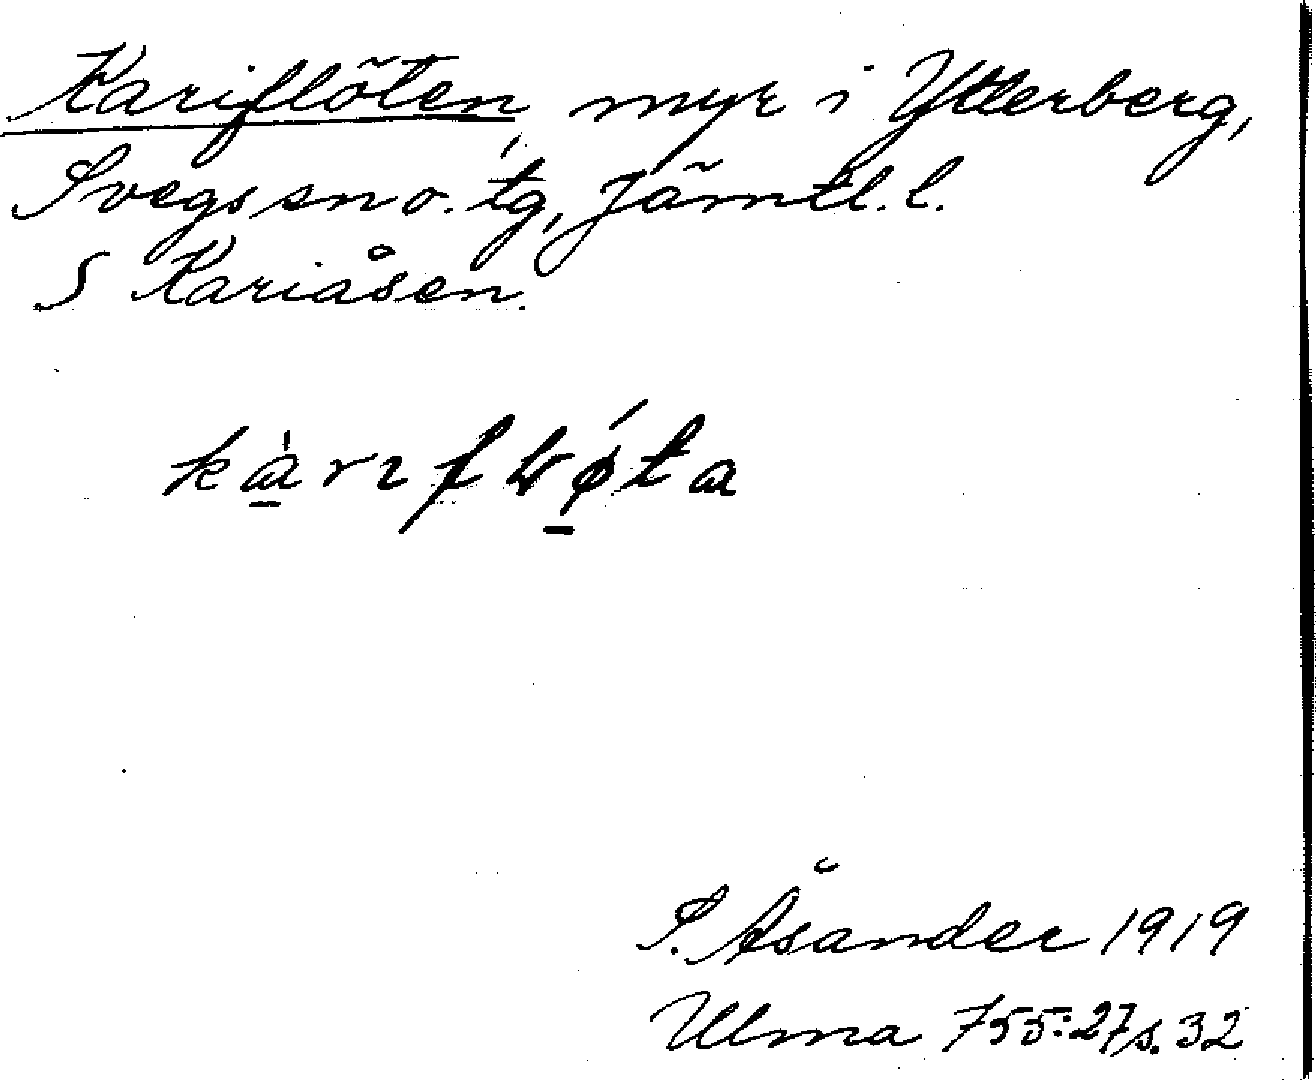 Kariflöten, myr i Ytterberg,
Svegs sn o. tg, Jämtl. l.
S Kariåsen.
S. Åsander 1919
Ulma 755:27 s. 32